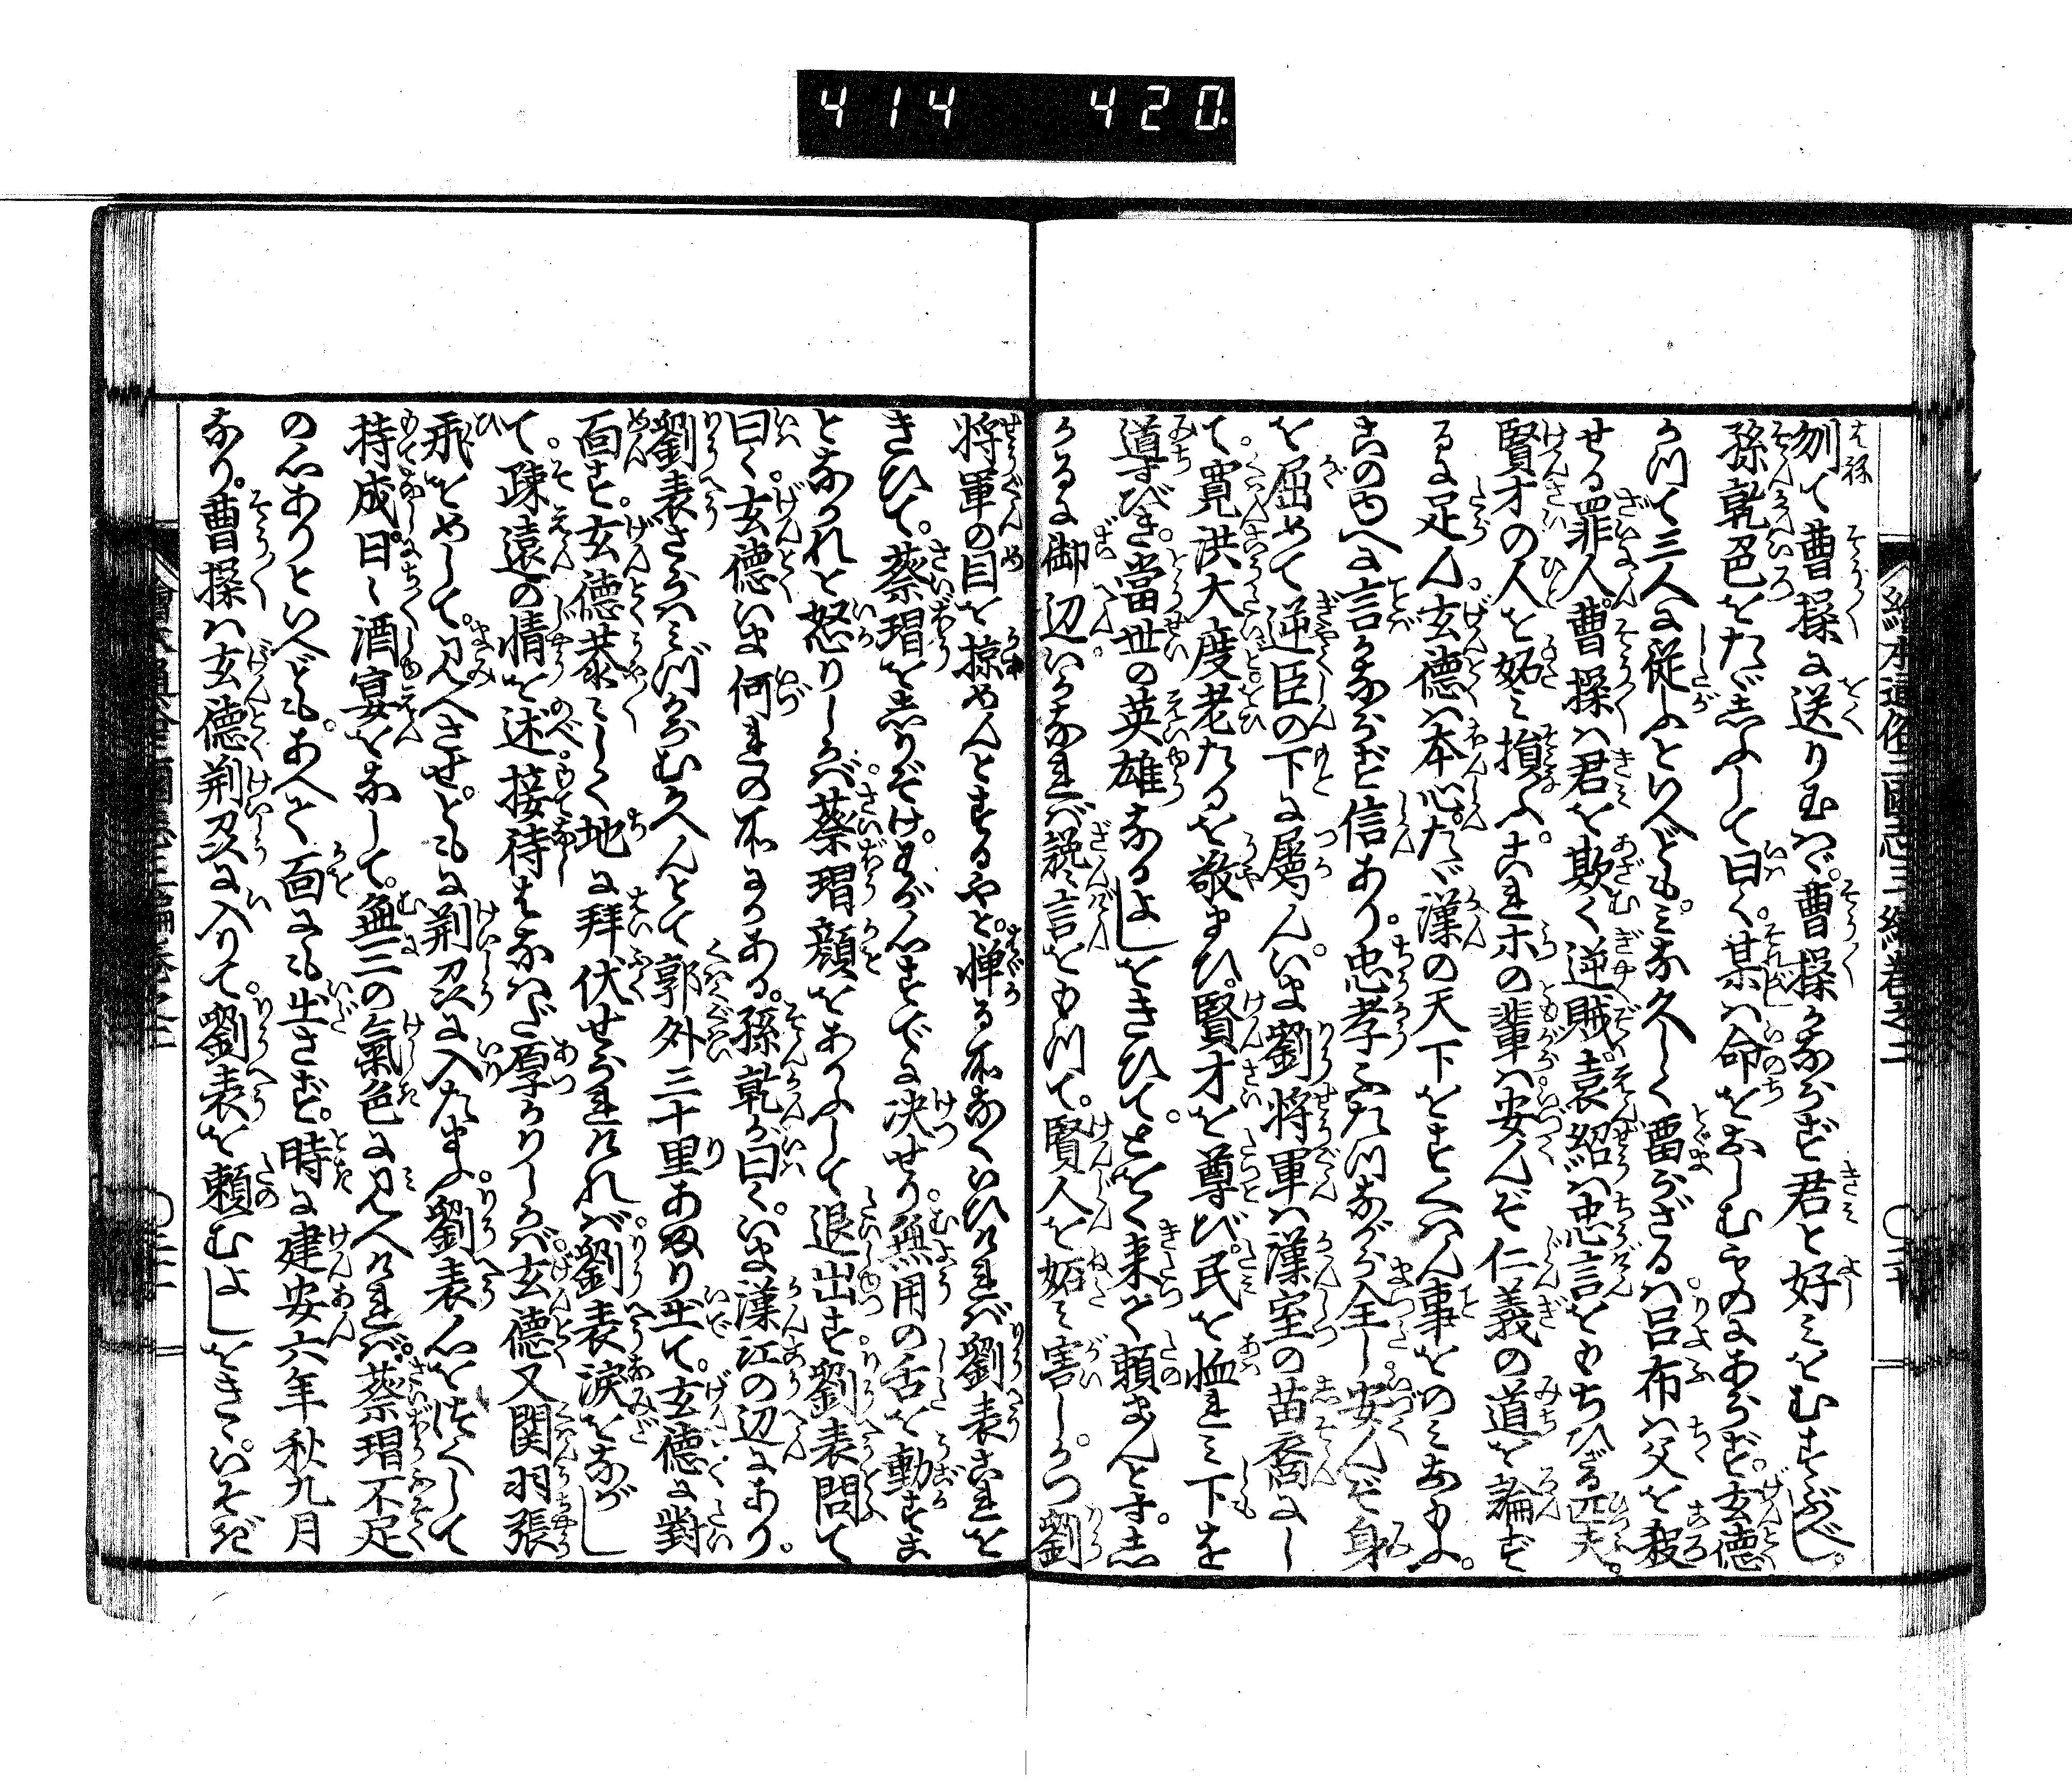 414 420
繪本通俗三國志三編卷之二
刎て曹操に送り玉はゞ。曹操かならず君と好みをむすぶべし。
孫乾色をたゞしふして曰く。某は命をおしむものにあらず。玄德
かつて三人に従ふといへども。みな久しく畱らざるは呂布は父を殺
せる罪人。曹操は君を欺く逆賊。袁紹は忠言をもちひざる匹夫。
賢才の人を妬み損ふ。これホの輩は安んぞ仁義の道を論ず
るに足ん。玄德は本心。たゞ漢の天下をすくはん事をのみおもふ。
このゆへに言かならず信あり。忠孝ふたつながら全し安んぞ身
を屈めて逆臣の下に属ん。いま劉将軍は漢室の苗裔にし
て寛洪大度老たるを敬まひ。賢才を尊び。民を恤れみ下を
導びき。當世の英雄なるよしをきひて。とをく来て頼まんとす。志
かるに御辺いかなれば讒言をもつて。賢人を妬み害しかつ劉
将軍の目を掠めんとするやと。憚る所なくいひければ劉表これを
きひて。蔡瑁をしりぞけ。わが心すでに决せり。無用の舌を動すこ
となかれと怒りしかば蔡瑁顔をあかふして退出す劉表問て
曰く。玄德いま何れの所にかある。孫乾が曰く。いま漢江の辺にあり。
劉表さらばみづからむかへんとて郭外三十里あまり出て。玄德に對
面す。玄德恭しく地に拜伏せられければ劉表涙をながし
て。疎遠の情を述。接待はなはだ厚かりしかば。玄德又関羽張
飛をめして。まみへさせ。ともに荆刕に入たまふ。劉表心をつくして
持成。日〻酒宴をなして。無二の氣色に見へければ。蔡瑁不足
の心ありといへども。あへて面にも出さず。時に建安六年秋九月
なり。曹操は玄德荆刕に入りて。劉表を頼むよしをきゝ。いそぎ